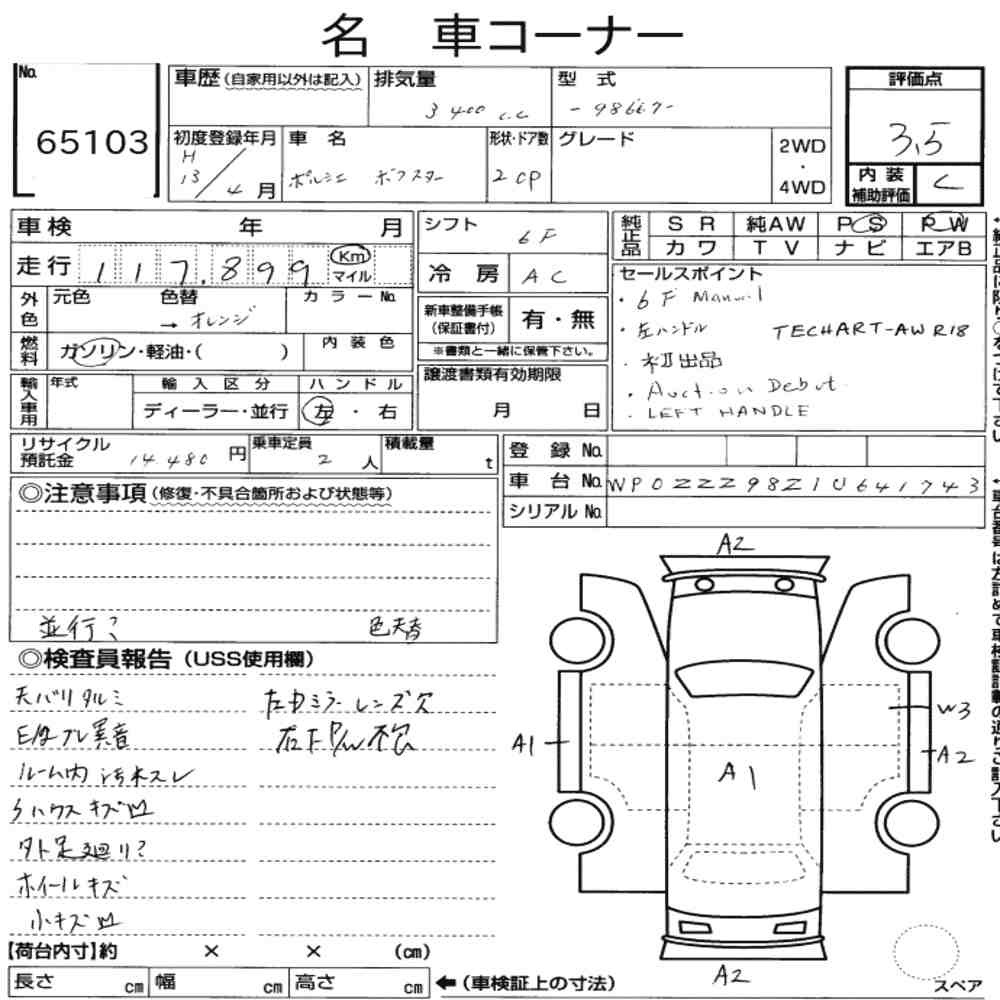 名 車コーナー
No. 65103
車歴(自家用以外は記入) 排気量 3400 c.c 型式 -98667-
評価点 3.5
内装補助評価 C
初度登録年月 H13/4月 車名 ポルシェ ボクスター 形状・ドア数 2 CP グレード 2WD・4WD
車検 年 月
走行 117,899 Km マイル
外色 元色 色替 → オレンジ カラーNo.
燃料 ガソリン・軽油・( ) 内装色
輸入車用 年式 輸入区分 ディーラー・並行 ハンドル 左・右
シフト 6F
冷房 AC
新車整備手帳(保証書付) 有・無
※書類と一緒に保管下さい。
譲渡書類有効期限 月 日
純正品 SR 純AW PS PW
カワ TV ナビ エアB
セールスポイント
・6F Manual
・左ハンドル TECHART-AW R18
・初出品
・Auction Debut.
・LEFT HANDLE
リサイクル預託金 14.480円 乗車定員 2人 積載量 t
登録No.
車台No. WP0ZZZ98Z1U641743
シリアルNo.
◎注意事項(修復・不具合箇所および状態等)
並行? 色替
◎検査員報告(USS使用欄)
天バリタルミ 左ドミラーレンズ欠
E/G
ルーム内汚れスレ
キズ凹
外足廻り?
ホイールキズ
小キズ凹
A2
W3
A1
A1
A2
A2
スペア
【荷台内寸】約 × × (cm)
長さ cm 幅 cm 高さ cm ←(車検証上の寸法)